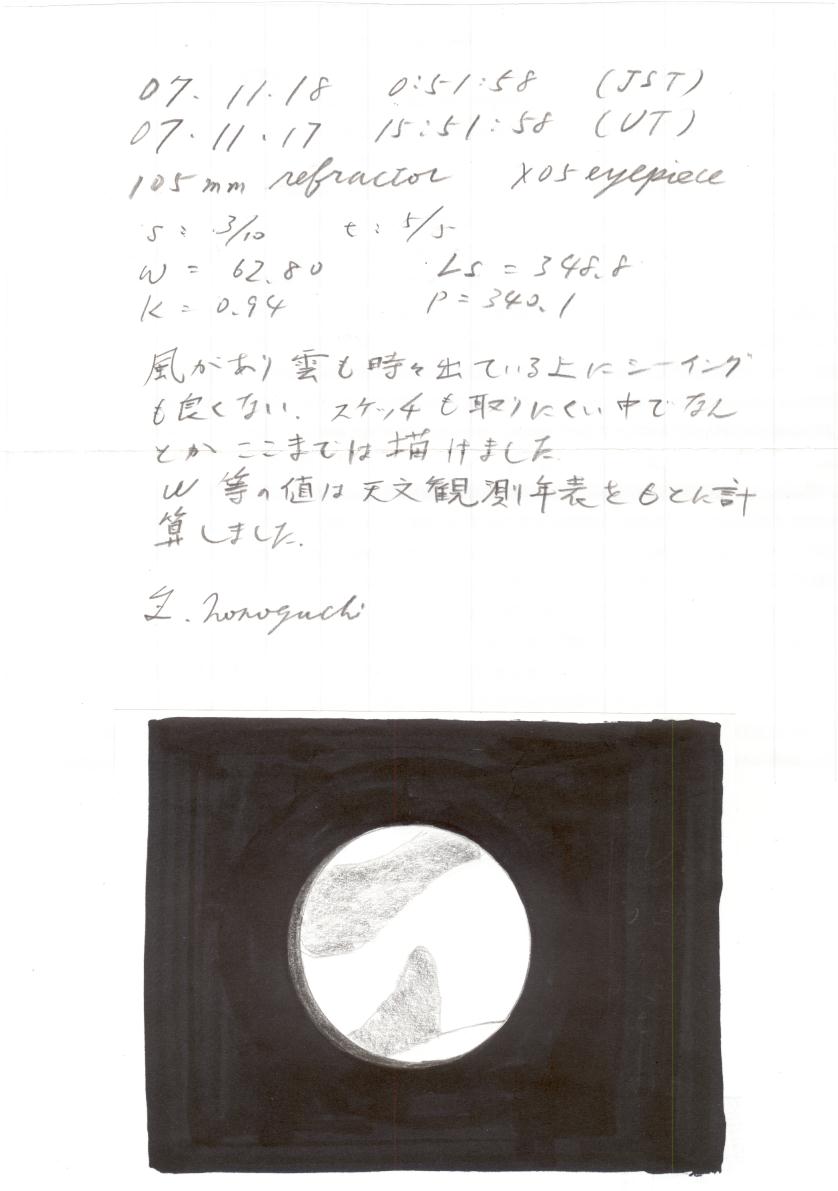 07.11.18 0:51:58 (JST)
07.11.17 15:51:58 (UT)
105mm refractor X05 eyepiece
s: 3/10 t: 5/5
W = 62.80 Ls = 348.8
K = 0.94 P = 340.1
風があり雲も時々出ている上にシーイング
も良くない. スケッチも取りにくい中でなん
とか ここまでは描けました
W 等の値は天文観測年表をもとに計
算しました.